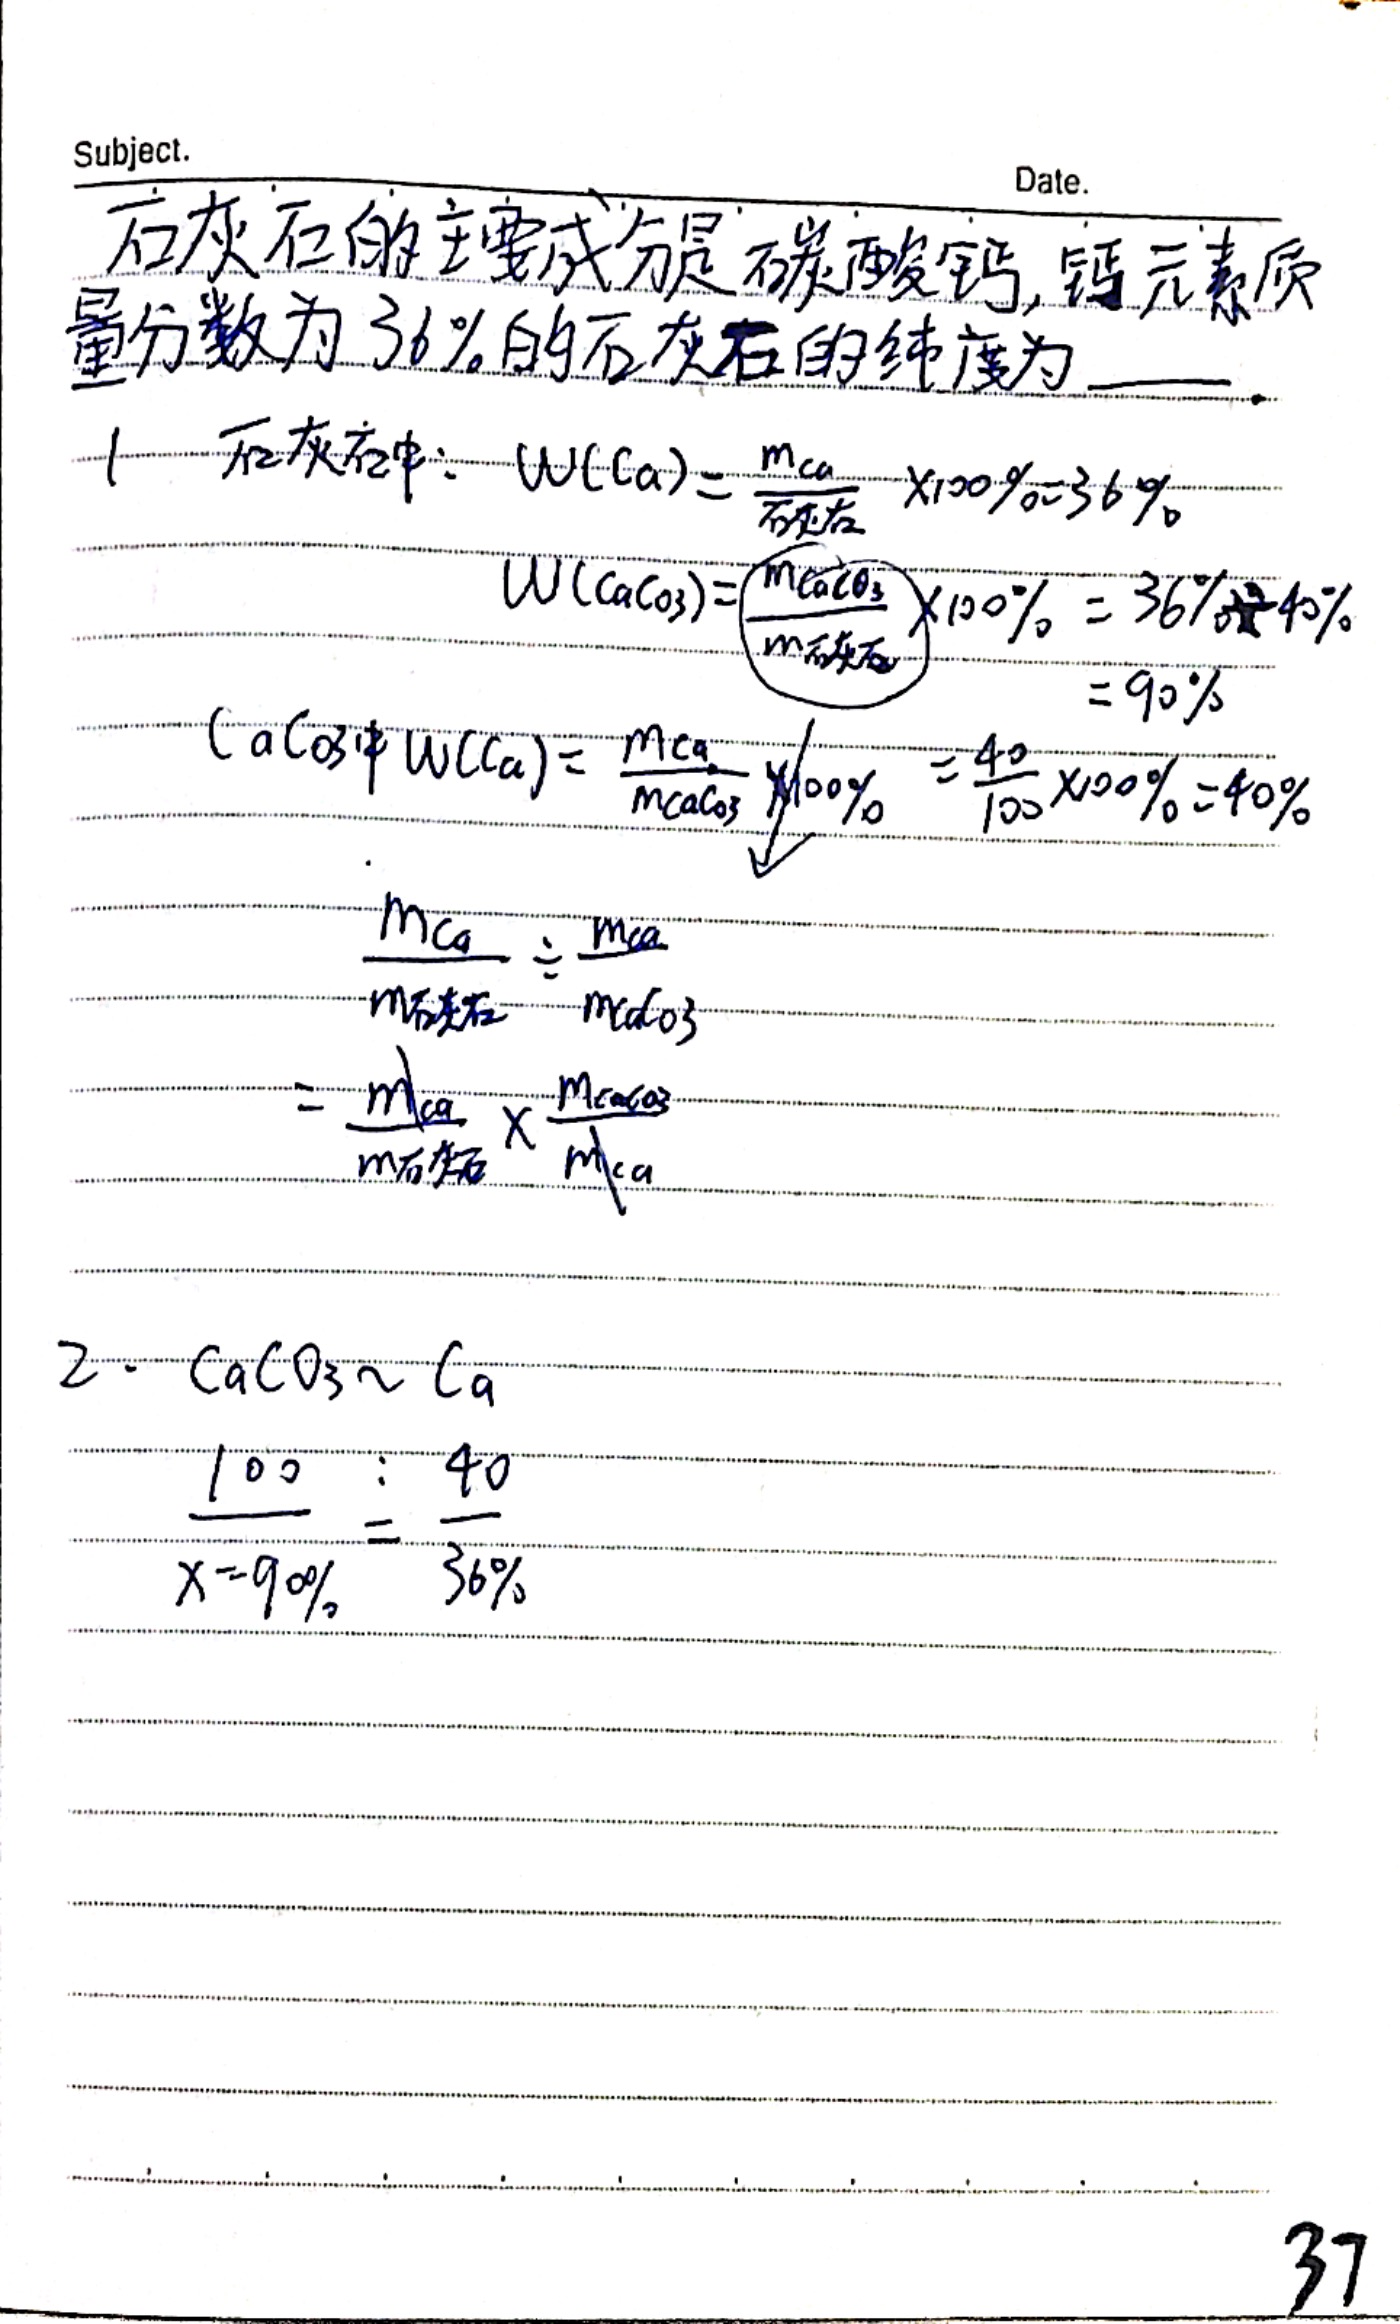 Subject.
Date.
石灰石的主要成分是碳酸钙,钙元素质
量分数为36%的石灰石的纯度为____.
1 石灰石中: W(Ca)= mCa/石灰石 ×100%=36%
W(CaCO3)= mCaCO3/m石灰石 ×100% = 36%÷40%
=90%
CaCO3中 W(Ca)= mCa/mCaCO3 ×100% = 40/100 ×100%=40%
mCa/m石灰石 ÷ mCa/mCaCO3
= mCa/m石灰石 × mCaCO3/mCa
2. CaCO3~Ca
100 : 40
=
x=90% 36%
37